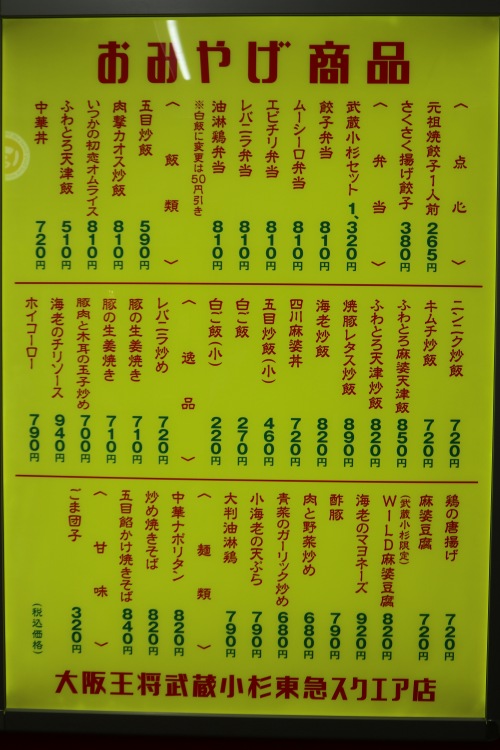 おみやげ商品
〈点心〉
元祖焼餃子1人前 265円
さくさく揚げ餃子 380円
〈弁当〉
武蔵小杉セット 1,320円
餃子弁当 810円
ムーシーロ弁当 810円
エビチリ弁当 810円
レバニラ弁当 810円
油淋鶏弁当 810円
※白飯に変更は50円引き
〈飯類〉
五目炒飯 590円
肉撃カオス炒飯 810円
いつかの初恋オムライス 810円
ふわとろ天津飯 510円
中華丼 720円
ニンニク炒飯 720円
キムチ炒飯 720円
ふわとろ麻婆天津飯 850円
ふわとろ天津炒飯 820円
焼豚レタス炒飯 890円
海老炒飯 820円
四川麻婆丼 720円
五目炒飯(小) 460円
白ご飯 270円
白ご飯(小) 220円
〈逸品〉
レバニラ炒め 720円
豚の生姜焼き 710円
豚の生姜焼き 710円
豚肉と木耳の玉子炒め 700円
海老のチリソース 940円
ホイコーロー 790円
鶏の唐揚げ 720円
麻婆豆腐 720円
(武蔵小杉限定)
WILD麻婆豆腐 820円
海老のマヨネーズ 920円
酢豚 790円
肉と野菜炒め 680円
青菜のガーリック炒め 680円
小海老の天ぷら 790円
大判油淋鶏 790円
〈麺類〉
中華ナポリタン 820円
炒め焼きそば 820円
五目餡かけ焼きそば 840円
〈甘味〉
ごま団子 320円
(税込価格)
大阪王将武蔵小杉東急スクエア店